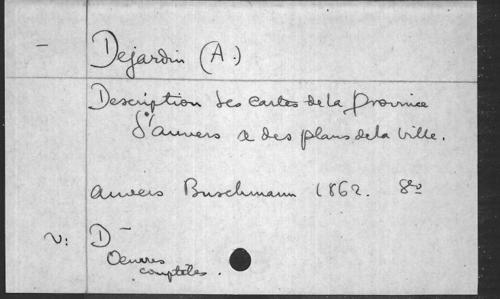 — Dejardin (A.)
Description des cartes de la Province
d'Anvers & des plans de la ville.
Anvers Buschmann 1862. 8vo
V: D —
Oeuvres
complètes.